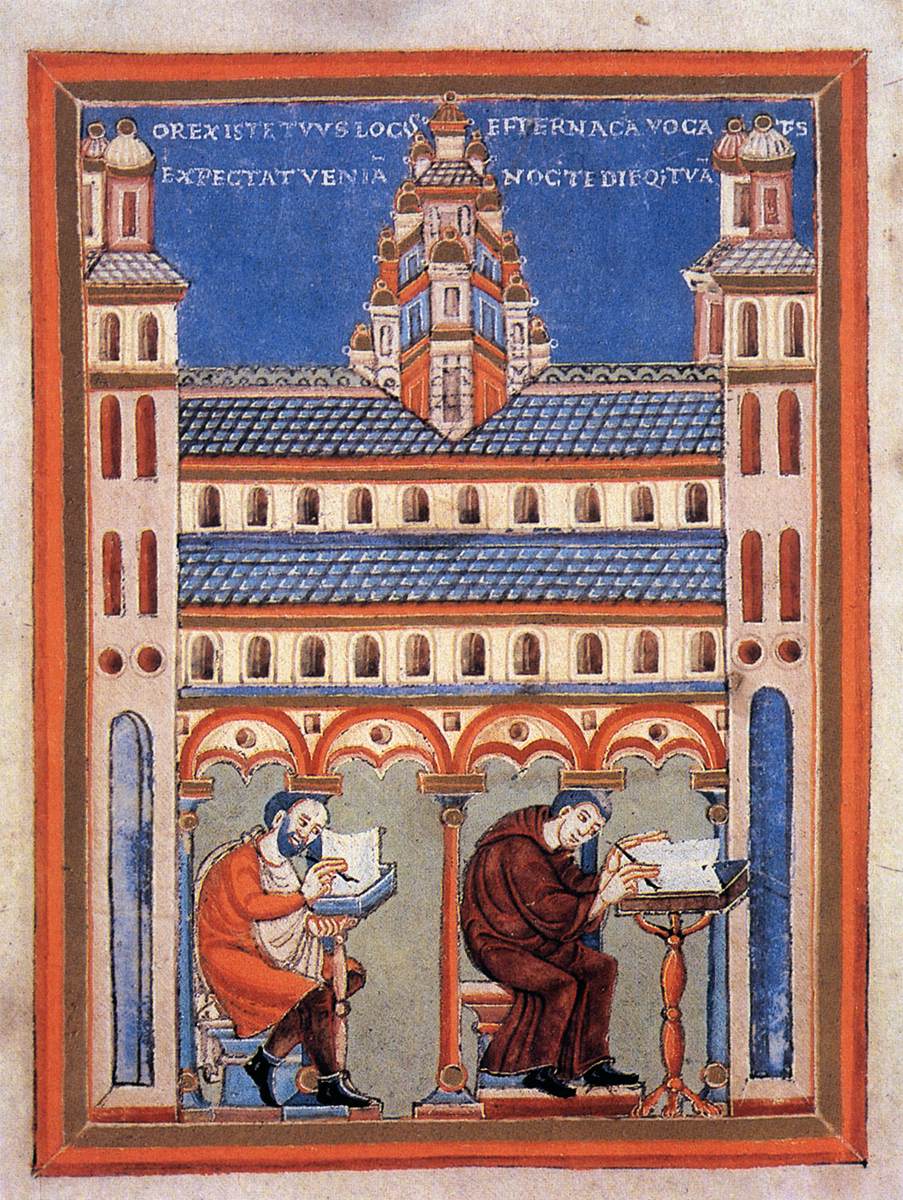 OREXISTE TVVS LOCVS EFTERNACA VOCA TVS
EXPECTAT VENIĀ NOCTE DIEQ; TVĀ